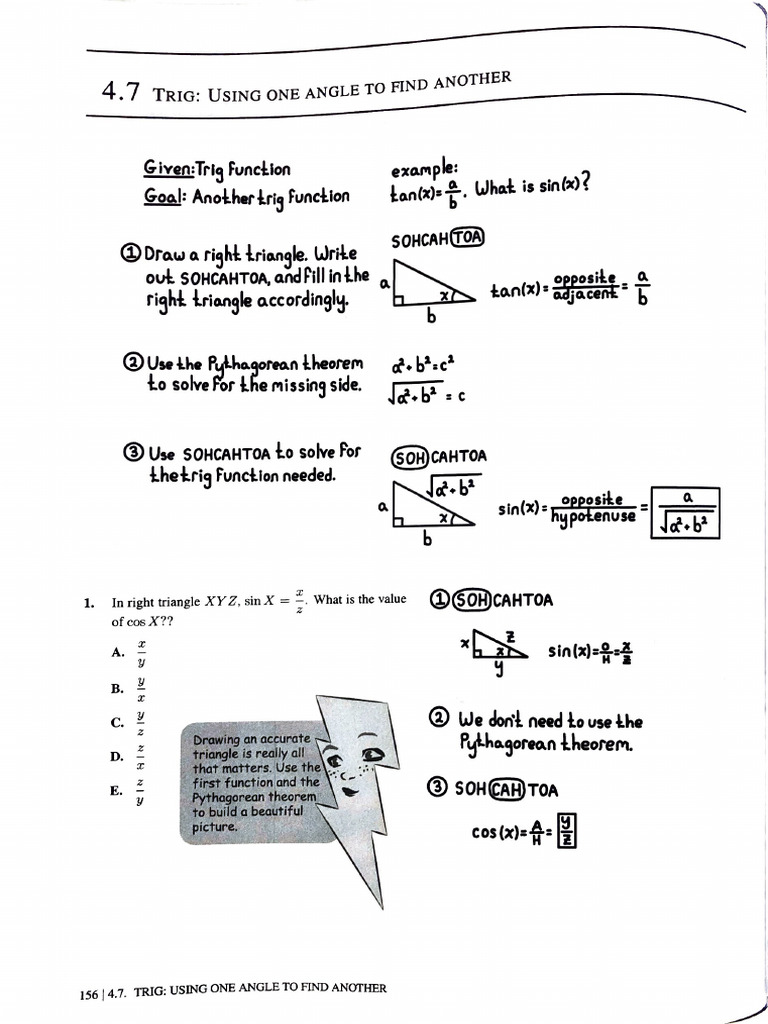 4.7 TRIG: USING ONE ANGLE TO FIND ANOTHER
Given: Trig Function
Goal: Another trig function
example:
tan(x)= a/b. What is sin(x)?
① Draw a right triangle. Write
out SOHCAHTOA, and fill in the
right triangle accordingly.
SOHCAHTOA
a
x
b
tan(x)= opposite/adjacent = a/b
② Use the Pythagorean theorem
to solve for the missing side.
a²+b²=c²
√a²+b² = c
③ Use SOHCAHTOA to solve for
the trig function needed.
SOHCAHTOA
√a²+b²
a
x
b
sin(x)= opposite/hypotenuse = a/√a²+b²
1. In right triangle XYZ, sin X = x/z. What is the value
of cos X??
A. x/y
B. y/x
C. y/z
D. z/x
E. z/y
Drawing an accurate
triangle is really all
that matters. Use the
first function and the
Pythagorean theorem
to build a beautiful
picture.
① SOHCAHTOA
x
z
x
y
sin(x)= O/H = x/z
② We don't need to use the
Pythagorean theorem.
③ SOHCAHTOA
cos(x)= A/H = y/z
156 | 4.7. TRIG: USING ONE ANGLE TO FIND ANOTHER